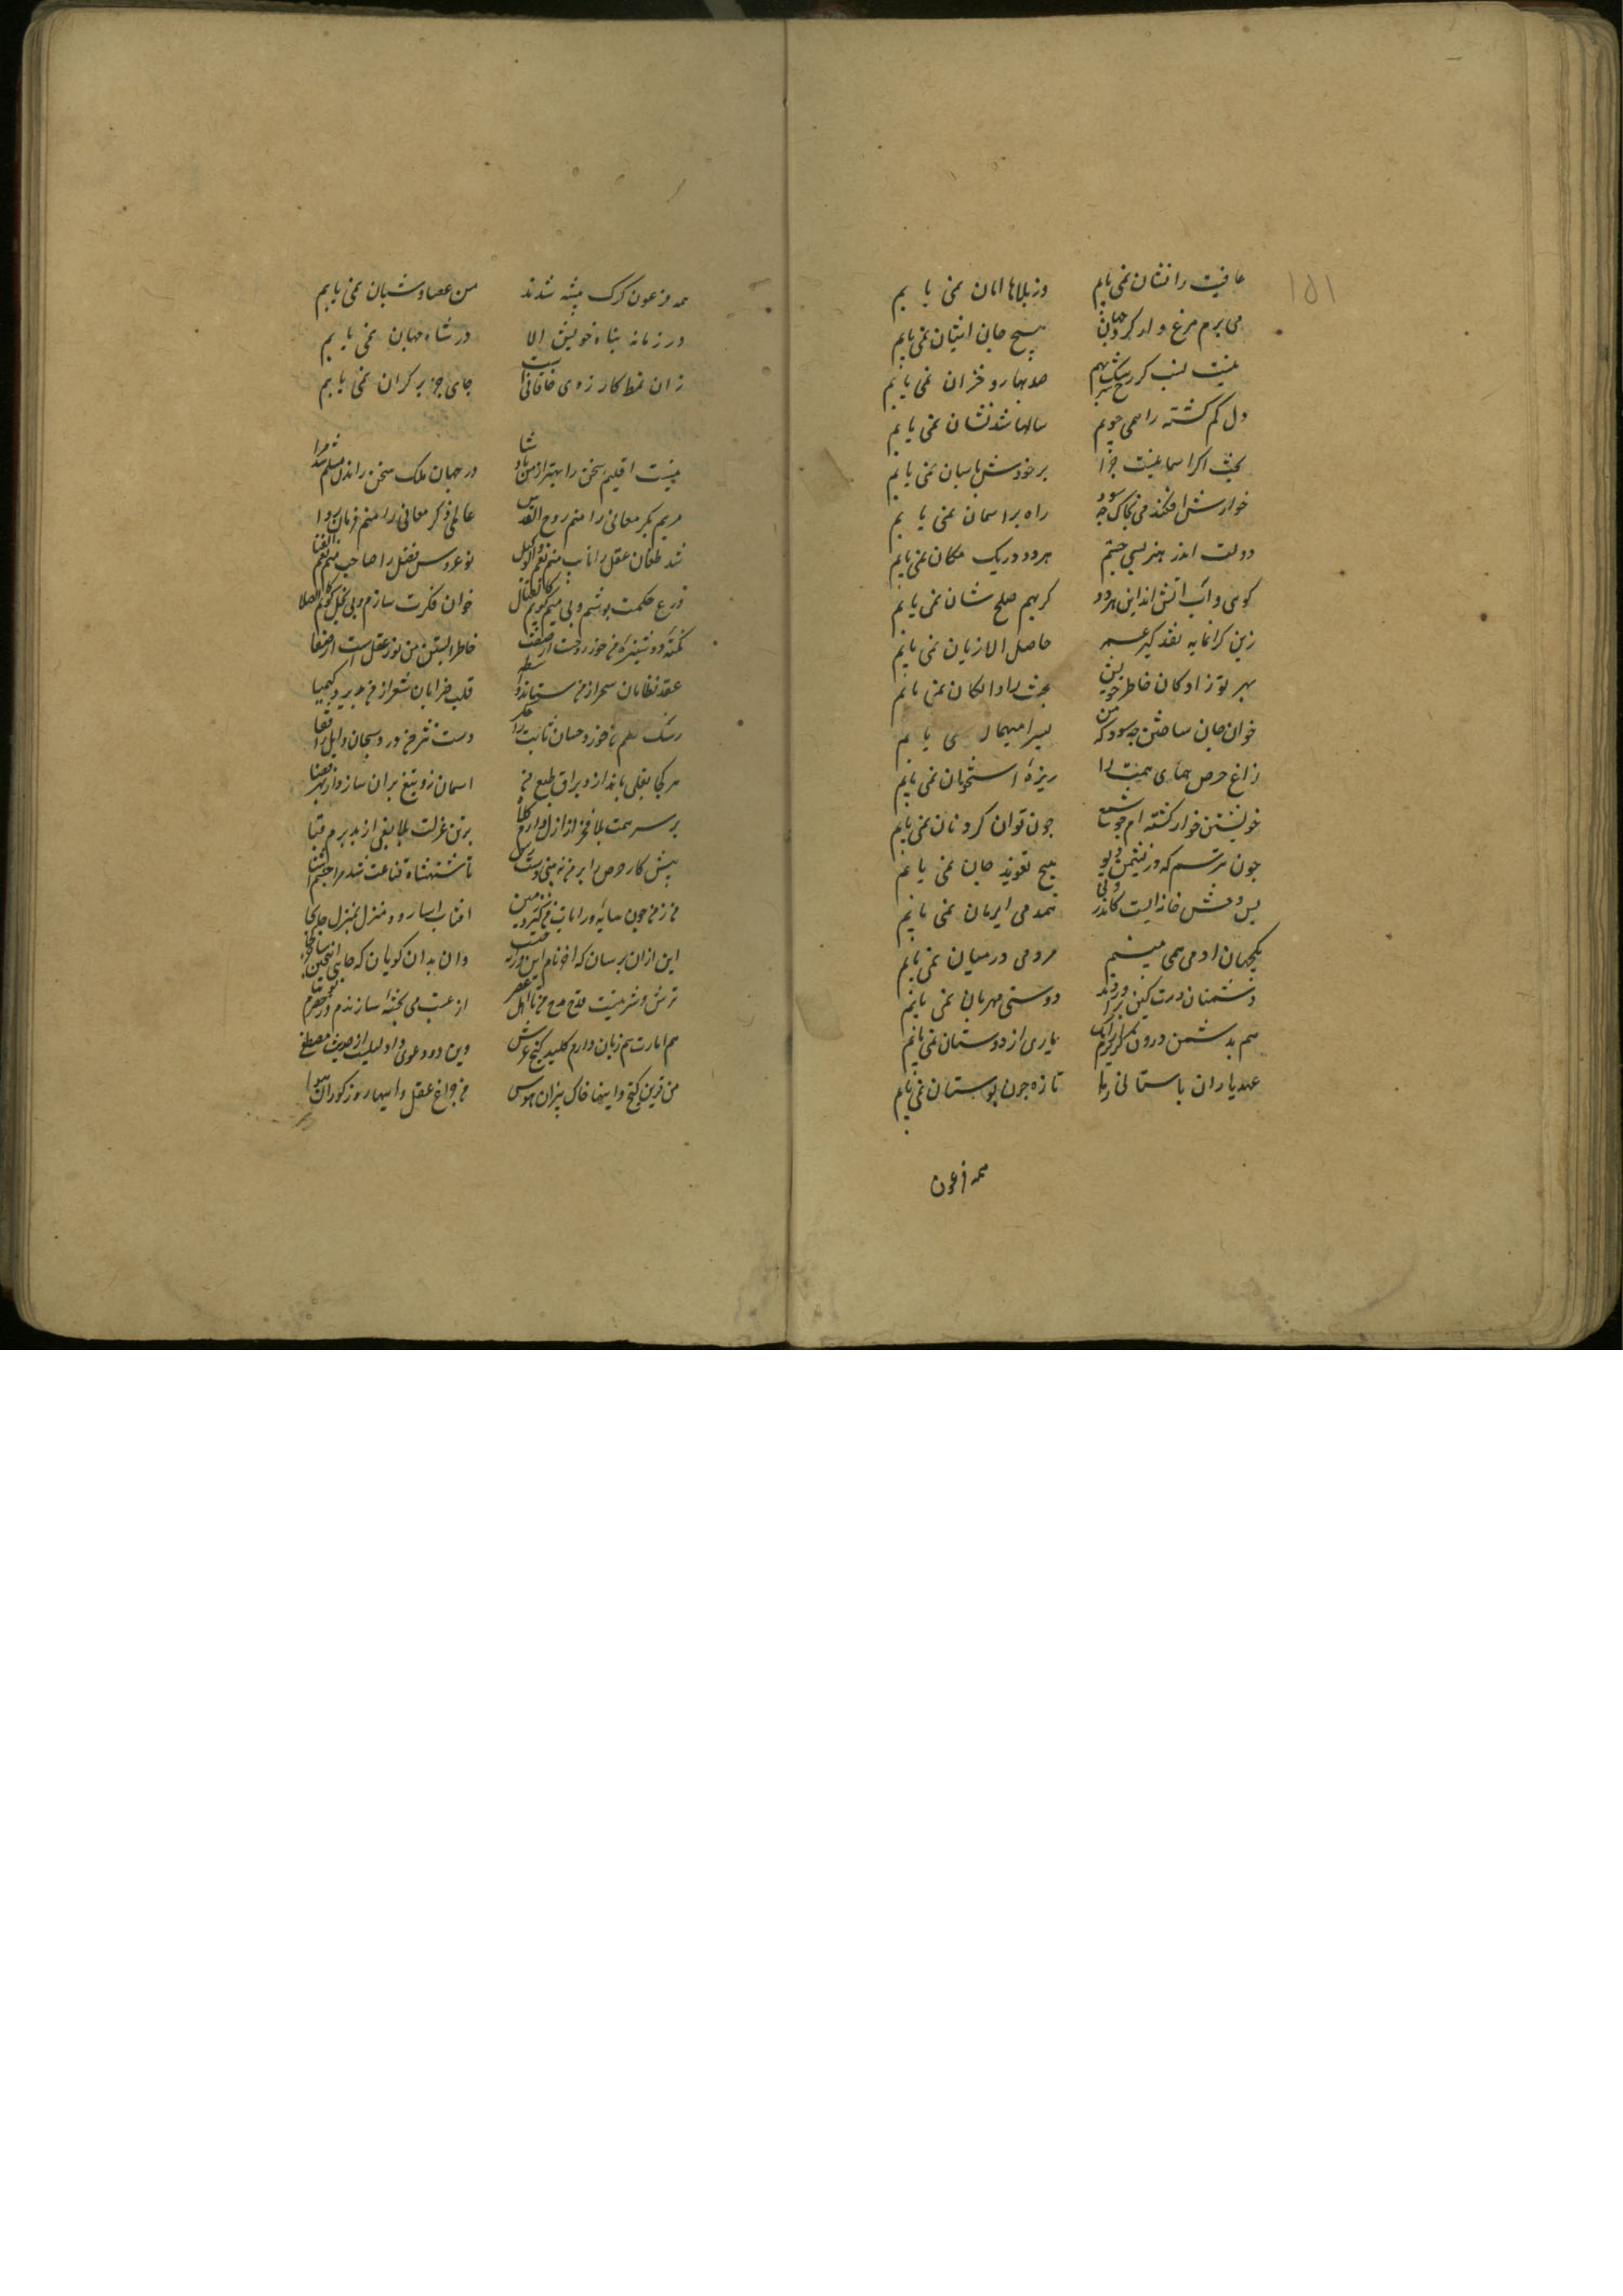 ۱۵۱
عافیت را نشان نمی یابم وز بلاها امان نمی یابم
می برم مرغ وار کرد جهان هیچ جان اشیان نمی یابم
نیست شب کز رشک صد بهار و خزان نمی یابم
دل کم کشته را همی جویم سالها شد نشان نمی یابم
بخت اکر اسمانیست چرا بر خودش پاسبان نمی یابم
خوارش افکند می بخاک چه سود راه بر اسمان نمی یابم
دولت اندر هنر بسی جستم هر دو در یک مکان نمی یابم
کویی آب و آتش اند این هر دو که بهم صلح شان نمی یابم
زین کرانمایه نقد کیسه عمر حاصل الا زیان نمی یابم
بهر نوزادکان خاطر خویش بخت را دایکان نمی یابم
خوان جان ساختن چه سود که من میهمان نمی یابم
زاغ حرص همای همت را ریزه استخوان نمی یابم
خویشتن خوار کشته ام چون شمع چون توان کرد نان نمی یابم
چون نترسم که در نشیمن دیو هیچ تعویذ جان نمی یابم
بس وحش خانه ایست کاندر وی همدمی ایرمان نمی یابم
یکجهان ادمی همی بینم مردمی در میان نمی یابم
دشمنان دست کین براوردند دوستی مهربان نمی یابم
هم بدشمن درون کریزم ازانک یاری از دوستان نمی یابم
عهد یاران باستانی را تازه چون بوستان نمی یابم
همه فرعون
همه فرعون کرک پیشه شدند من عصا و شبان نمی یابم
در زمانه پناه خویش الا در شاه جهان نمی یابم
زان نمط کارزوی خاقانی است جای جز بر کران نمی یابم
نیست اقلیم سخن را بهتر از من پادشا در جهان ملک سخن راندن مسلم شد مرا
مریم بکر معانی را منم روح القدس عالم ذکر معانی را منم فرمان روا
شه طغان عقل را نایب منم نعم الوکیل نو عروس فضل را صاحب منم نعم الفتا
درع حکمت پوشم و بی بیم کویم کالقتال خوان فکرت سازم و بی بخل کویم الصلا
نکته دوشیزه من خود روحست از صفت خاطر ابستن من نور عقل است از صفا
عقد نظامان سحر از من ستاند واسطه قلب ضرابان شعر از من پذیرد کیمیا
رشک نظم من خورد حسان ثابت را جکر دست نثر من زند سحبان وایل را قفا
هر کجا نعلی بیندازد براق طبع من اسمان زو تیغ بران سازد از بهر قضا
بر سر همت بلا فخر از ازل دارم کلاه بر تن عزلت بلا بغی از ابد برم قبا
پیش کار حرص را بر من نه بینی دست رس تا شهنشاه قناعت شد مرا جسم اشنا
من ز من چون سایه و ایات من کرد زمین افتاب اسا رود منزل بمنزل جا بجا
این ازان پرسان که اخر نام این فرزانه چیست وان بدان کویان که جای این سخن کو
ترش و شیرینست قدح و مدح من با اهل عصر از عنب می پخته سازند و ز حصرم توتیا
هم امارت هم زبان دارم کلید کنج عرش وین دو دعوی را دلیلست از حدیث مصطفی
من قرین کنج و اینها خاک بیزان هوس من چراغ عقل و اینها روز کوران هوا